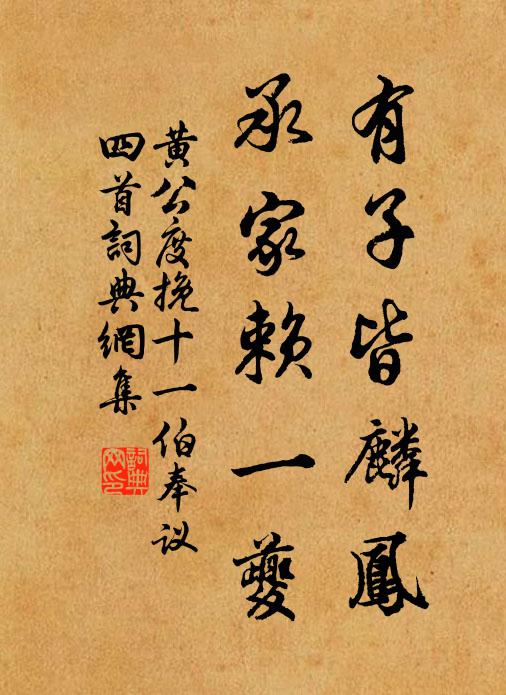 有子皆麟鳳
承家賴一夔
黃公度挽十一伯奉议
四首詞典網集
詞典網印